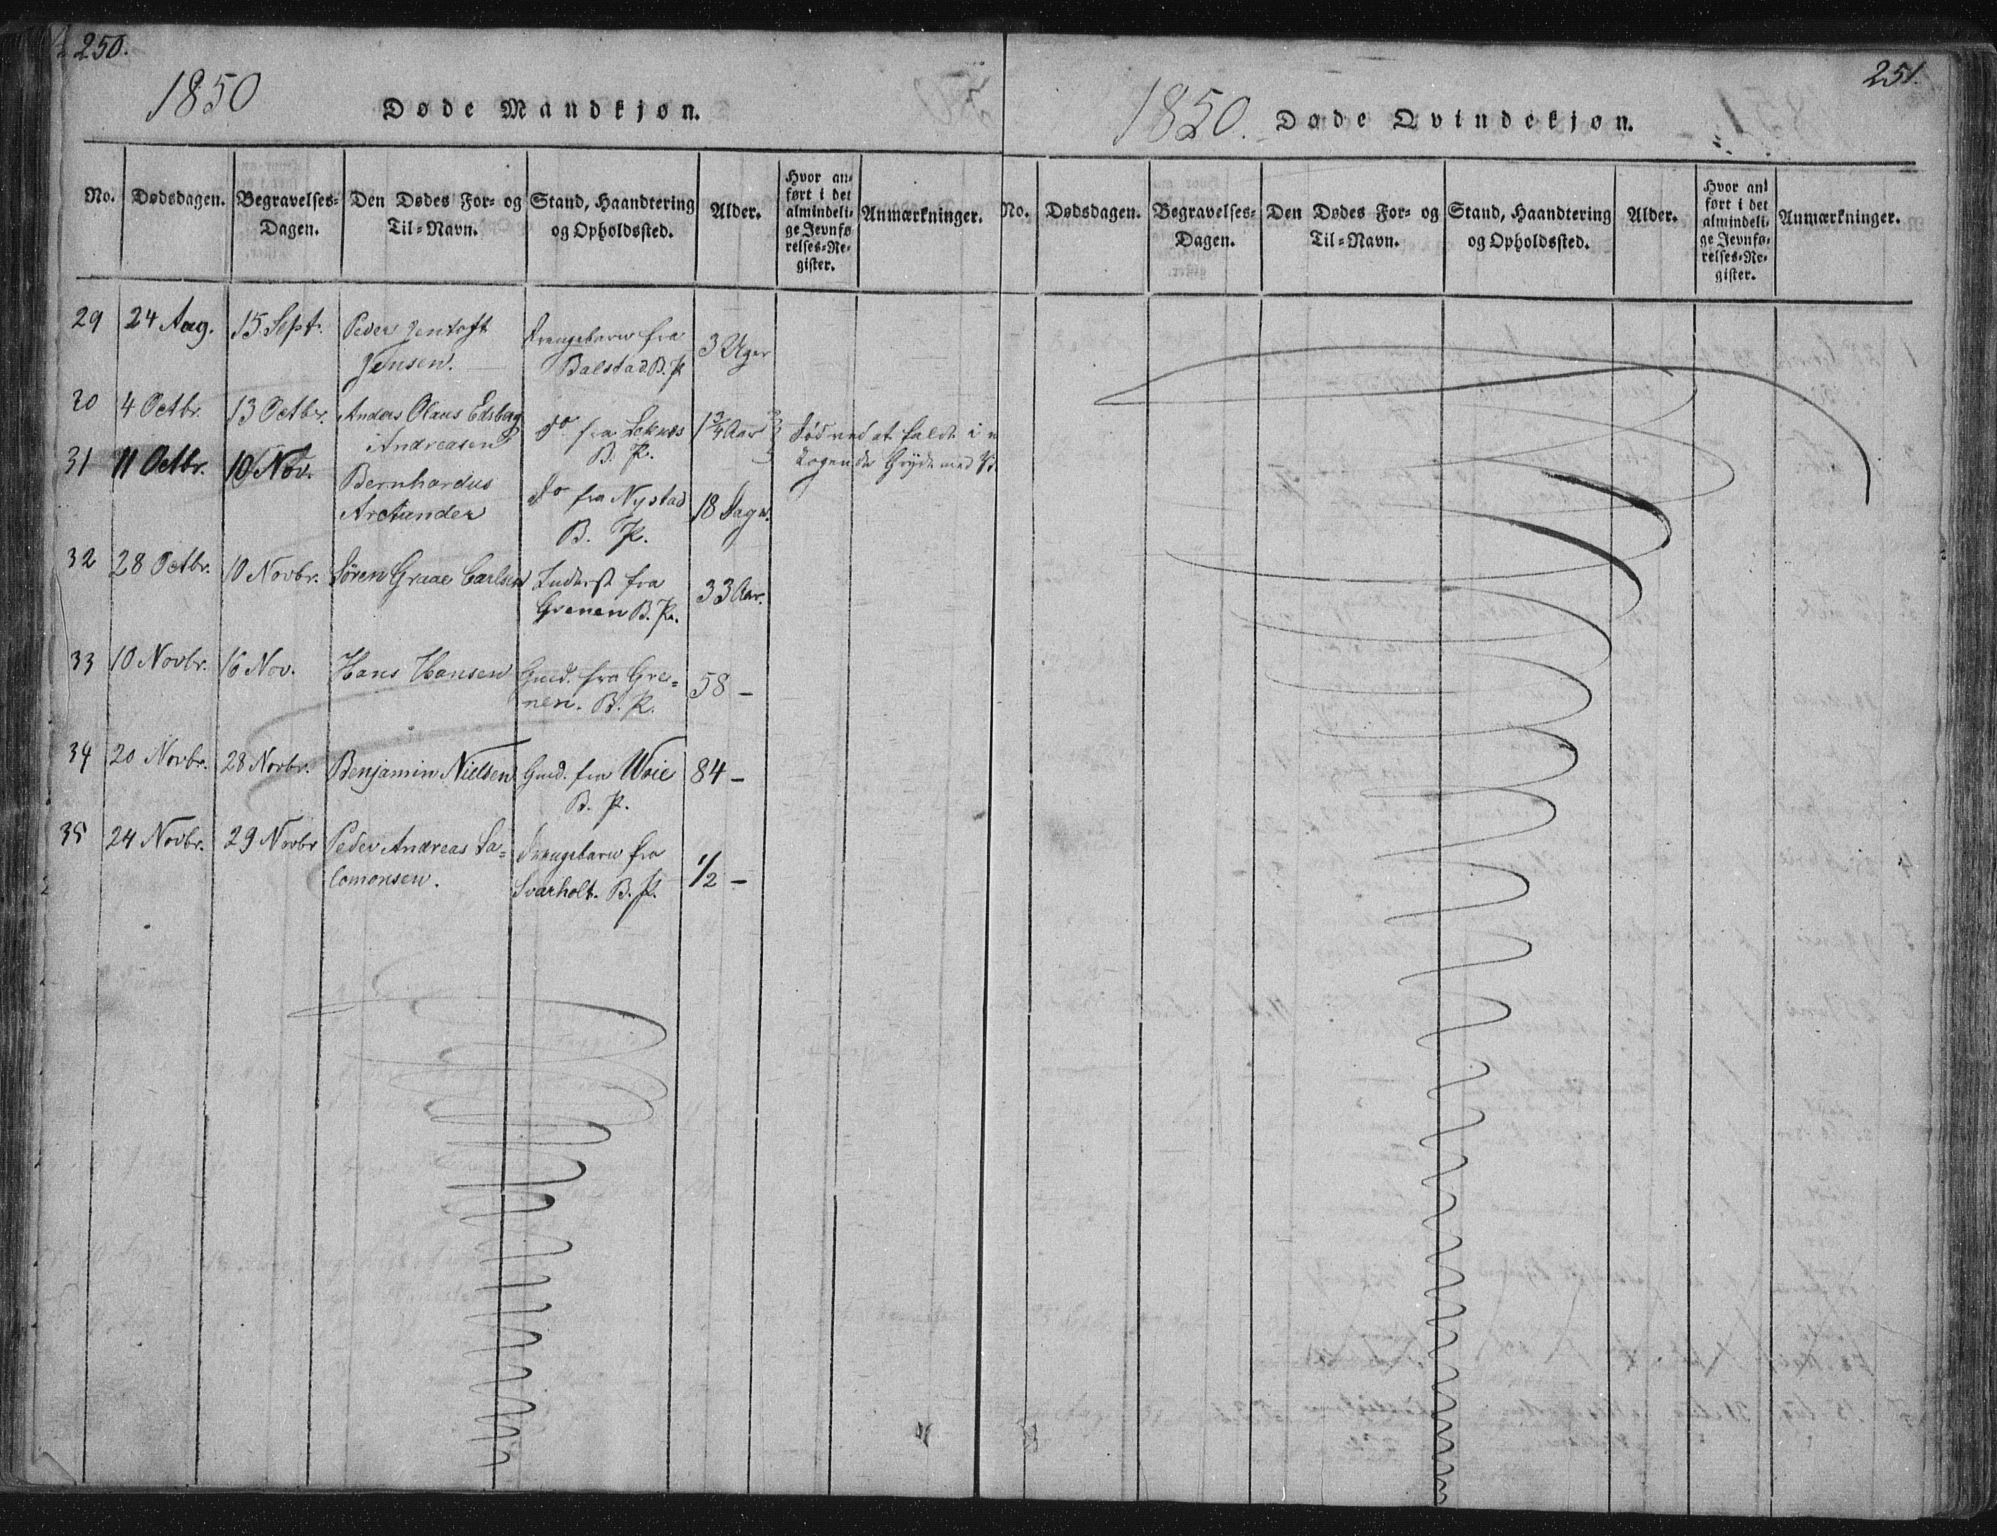 250.
1850
Døde Mandkjøn.
No. Dødsdagen. Begravelses-Dagen. Den Dødes For- og Til-Navn. Stand, Haandtering og Opholdssted. Alder. Hvor anført i det almindelige Jevnførelses-Register. Anmærkninger.
29 24 Aug. 15 Sept. Peder Jentoft Drengebarn fra 3 Uger
Jensen. Balstad B. P.
30 4 Octbr. 13 Octbr. Anders Olaus Edsberg Do fra Leknes 1 3/4 Aar Død ved at falde i
Andreasen B. P. kogende Gryde med
31 11 Octbr. 10 Nov. Bernhardus Do fra Nystad 18 Dage.
Arctander B. P.
32 28 Octbr. 10 Novbr. Søren Graae Carlsen Inderst fra 33 Aar.
Grenen B. P.
33 10 Novbr. 16 Nov. Hans Hansen Gmd. fra Gre- 58 –
nen. B. P.
34 20 Novbr. 28 Novbr. Benjamin Nielsen Gmd. fra Woie 84 –
B. P.
35 24 Novbr. 29 Novbr Peder Andreas Sa- Drengebarn fra 1/2 –
lomonsen. Svarholt. B. P.
251.
1850.
Døde Qvindekjøn.
No. Dødsdagen. Begravelses-Dagen. Den Dødes For- og Til-Navn. Stand, Haandtering og Opholdssted. Alder. Hvor anført i det almindelige Jevnførelses-Register. Anmærkninger.